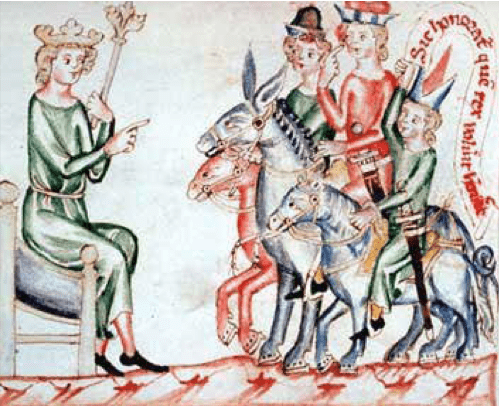 Sic honorat̄
quē rex voluit